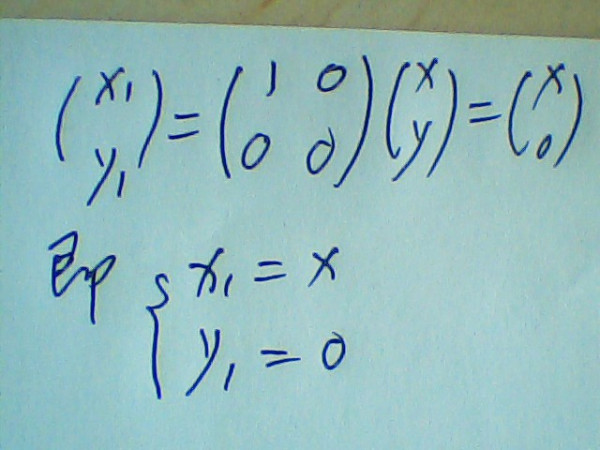 (x₁ y₁) = (1 0 0 0) (x y) = (x 0)
即 { x₁ = x
y₁ = 0